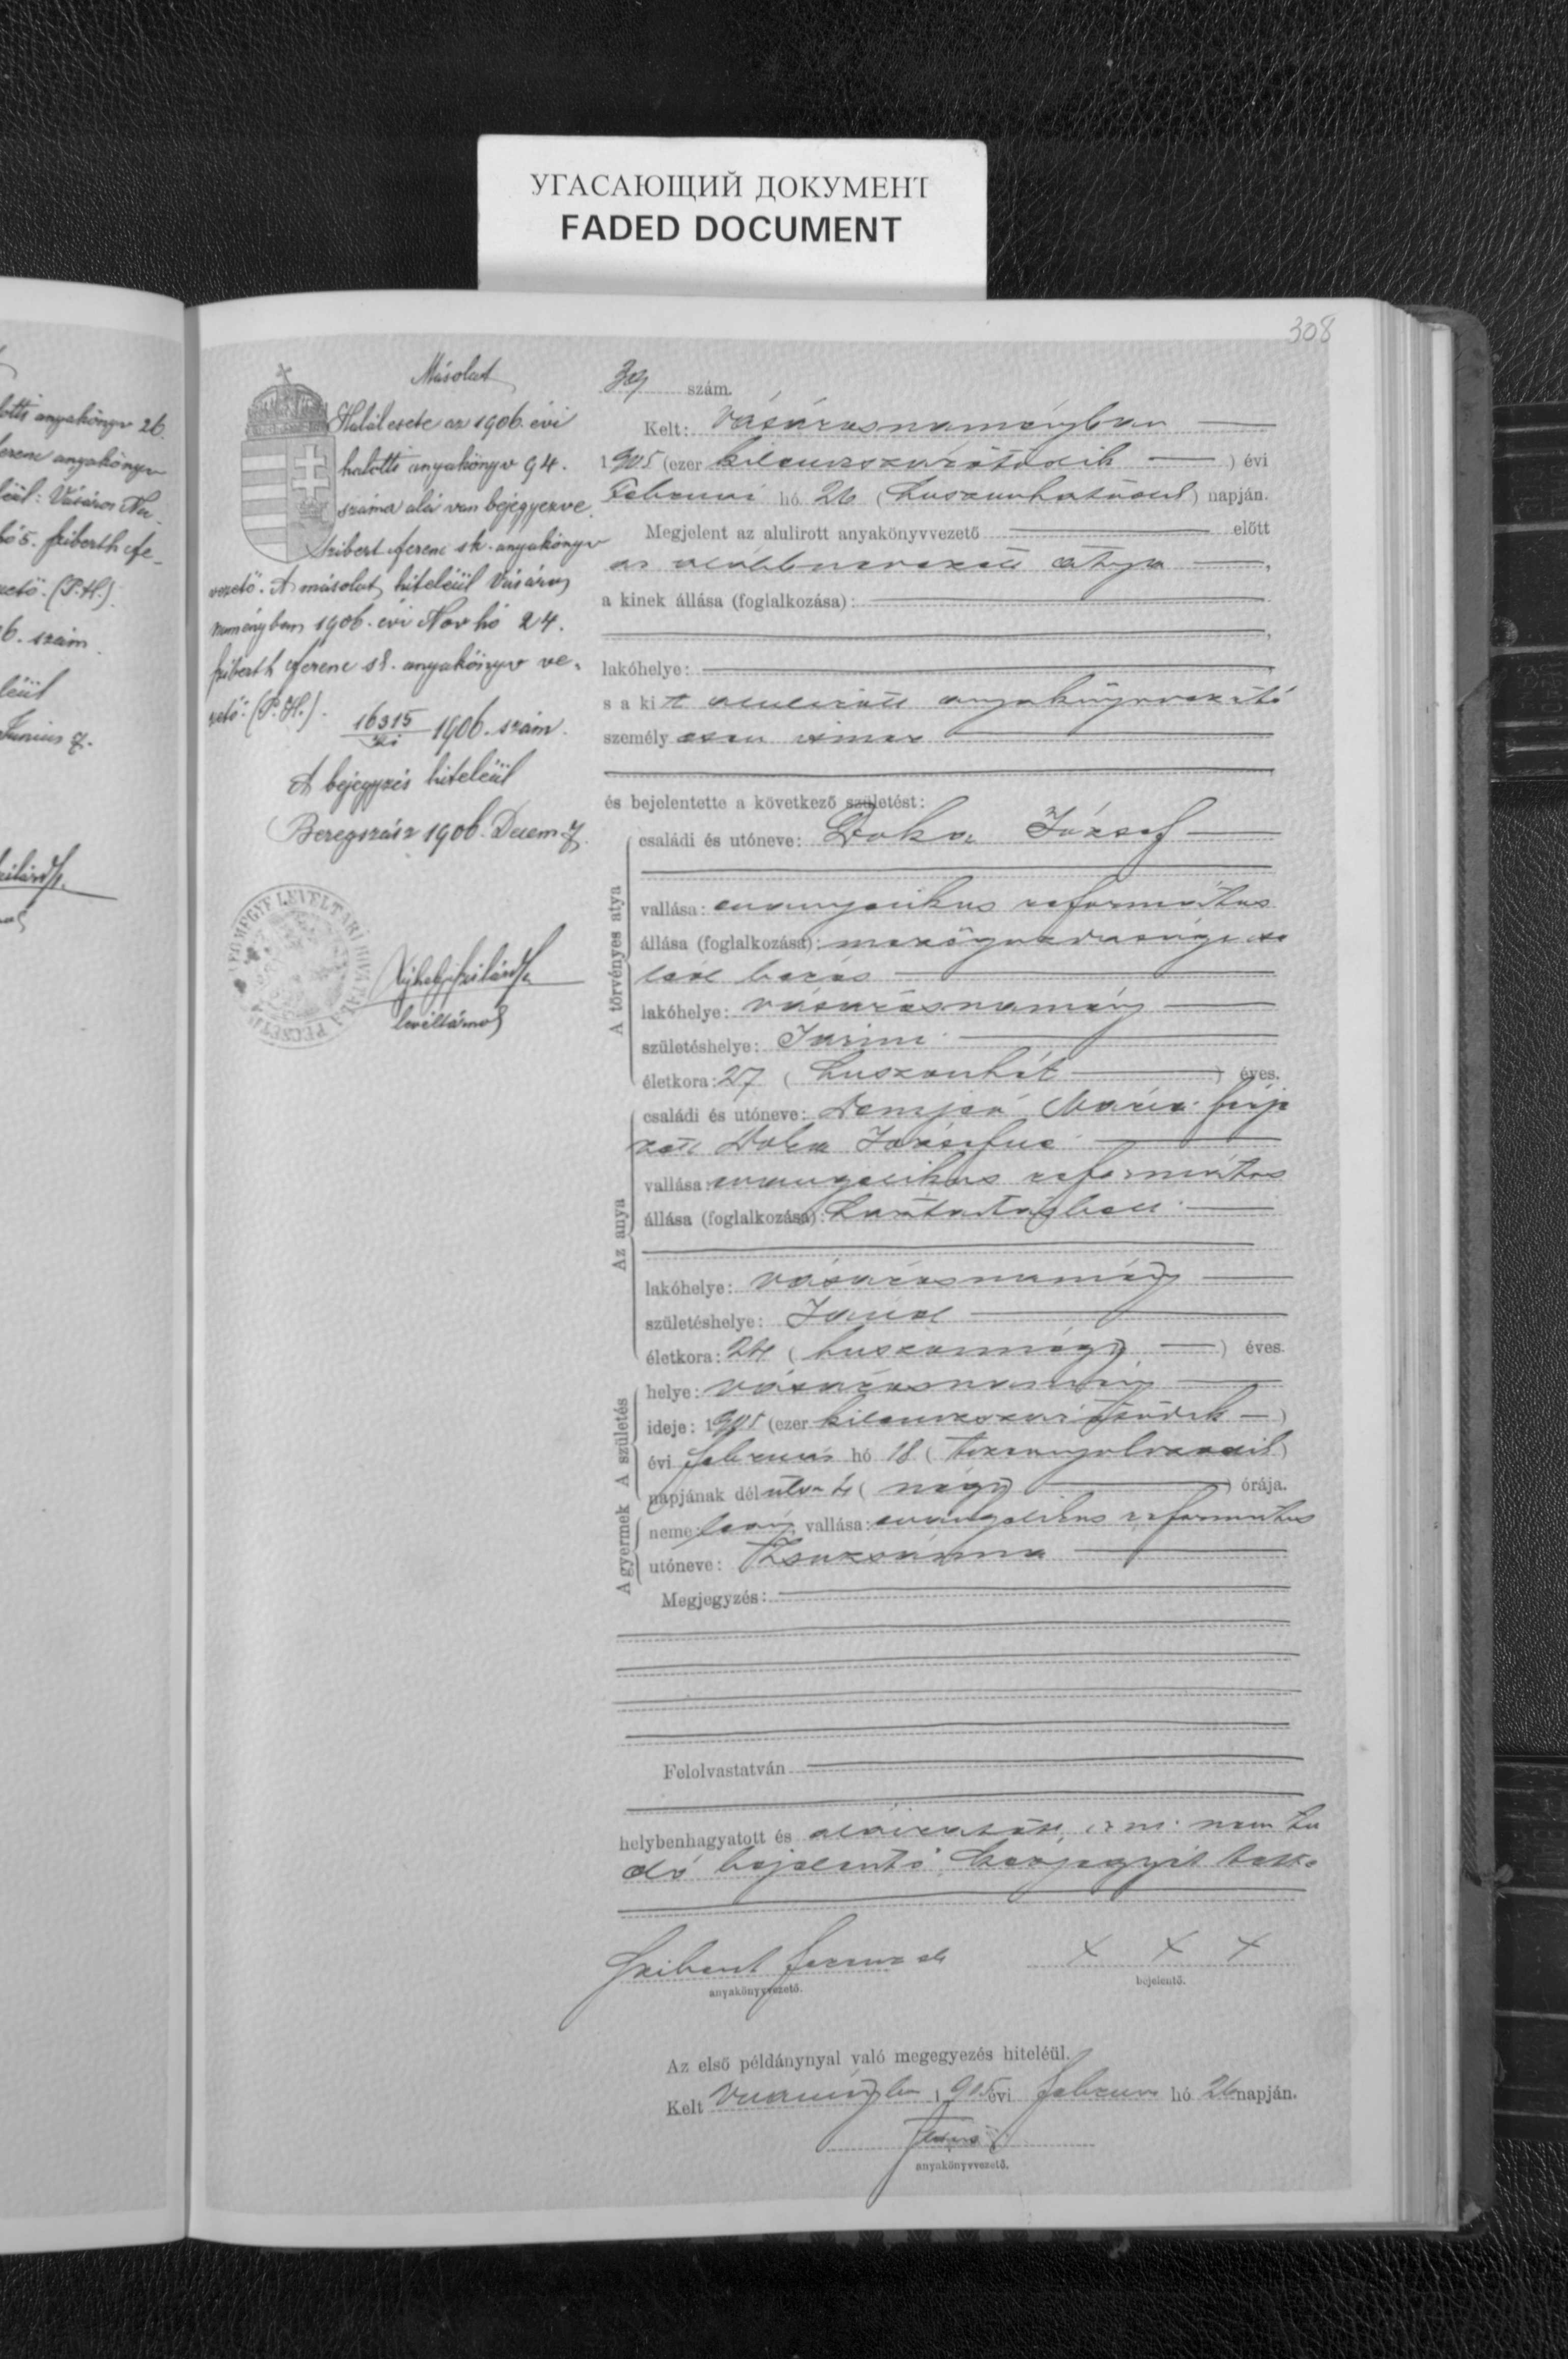 УГАСАЮЩИЙ ДОКУМЕНТ
FADED DOCUMENT
308
anyakönyv 26.
anyakönyv
(P.H.)
6. szám
Junius 7.
Másolat
Halálesete az 1906. évi
halotti anyakönyv 94.
száma alá van bejegyezve.
Szibert Ferenc sk. anyakönyv
vezető. A másolat hiteléül Vásáros
naményban 1906. évi Nov hó 24.
Szibert Ferenc sk. anyakönyv ve-
zető. (P.H.).
16315 1906. szám.
A bejegyzés hiteléül
Beregszász 1906. Decem 7.
levéltárnok
39 szám.
Kelt: Vásárosnaményban
1905 (ezer kilenczszázötödik) évi
Február hó 26 (huszonhatodik) napján.
Megjelent az alulirott anyakönyvvezető előtt
az alább nevezett atya,
a kinek állása (foglalkozása):
lakóhelye:
s a kit alulirott anyakönyvvezető
személyesen ismer
és bejelentette a következő születést:
A törvényes atya
családi és utóneve: Doka József
vallása: evangelikus református
állása (foglalkozása): mezőgazdasági cse
léd
lakóhelye: Vásárosnamény
születéshelye:
életkora: 27 (huszonhét) éves.
Az anya
családi és utóneve: Demjén Mária férje
zett Doka Józsefné
vallása: evangelikus református
állása (foglalkozása): háztartásbeli
lakóhelye: Vásárosnamény
születéshelye: Jánd
életkora: 24 (huszonnégy) éves.
A születés
helye: Vásárosnamény
ideje: 1905 (ezer kilenczszázötödik)
évi február hó 18 (tizennyolczadik)
napjának délután 4 (négy) órája.
A gyermek
neme: leány vallása: evangelikus református
utóneve: Zsuzsánna
Megjegyzés:
Felolvastatván
helybenhagyatott és aláiratott, irni nem tu
dó bejelentő kézjegyét tette
Szibert Ferenc sk
anyakönyvvezető.
x x x
bejelentő.
Az első példánynyal való megegyezés hiteléül.
Kelt 1905 évi február hó 26 napján.
anyakönyvvezető.